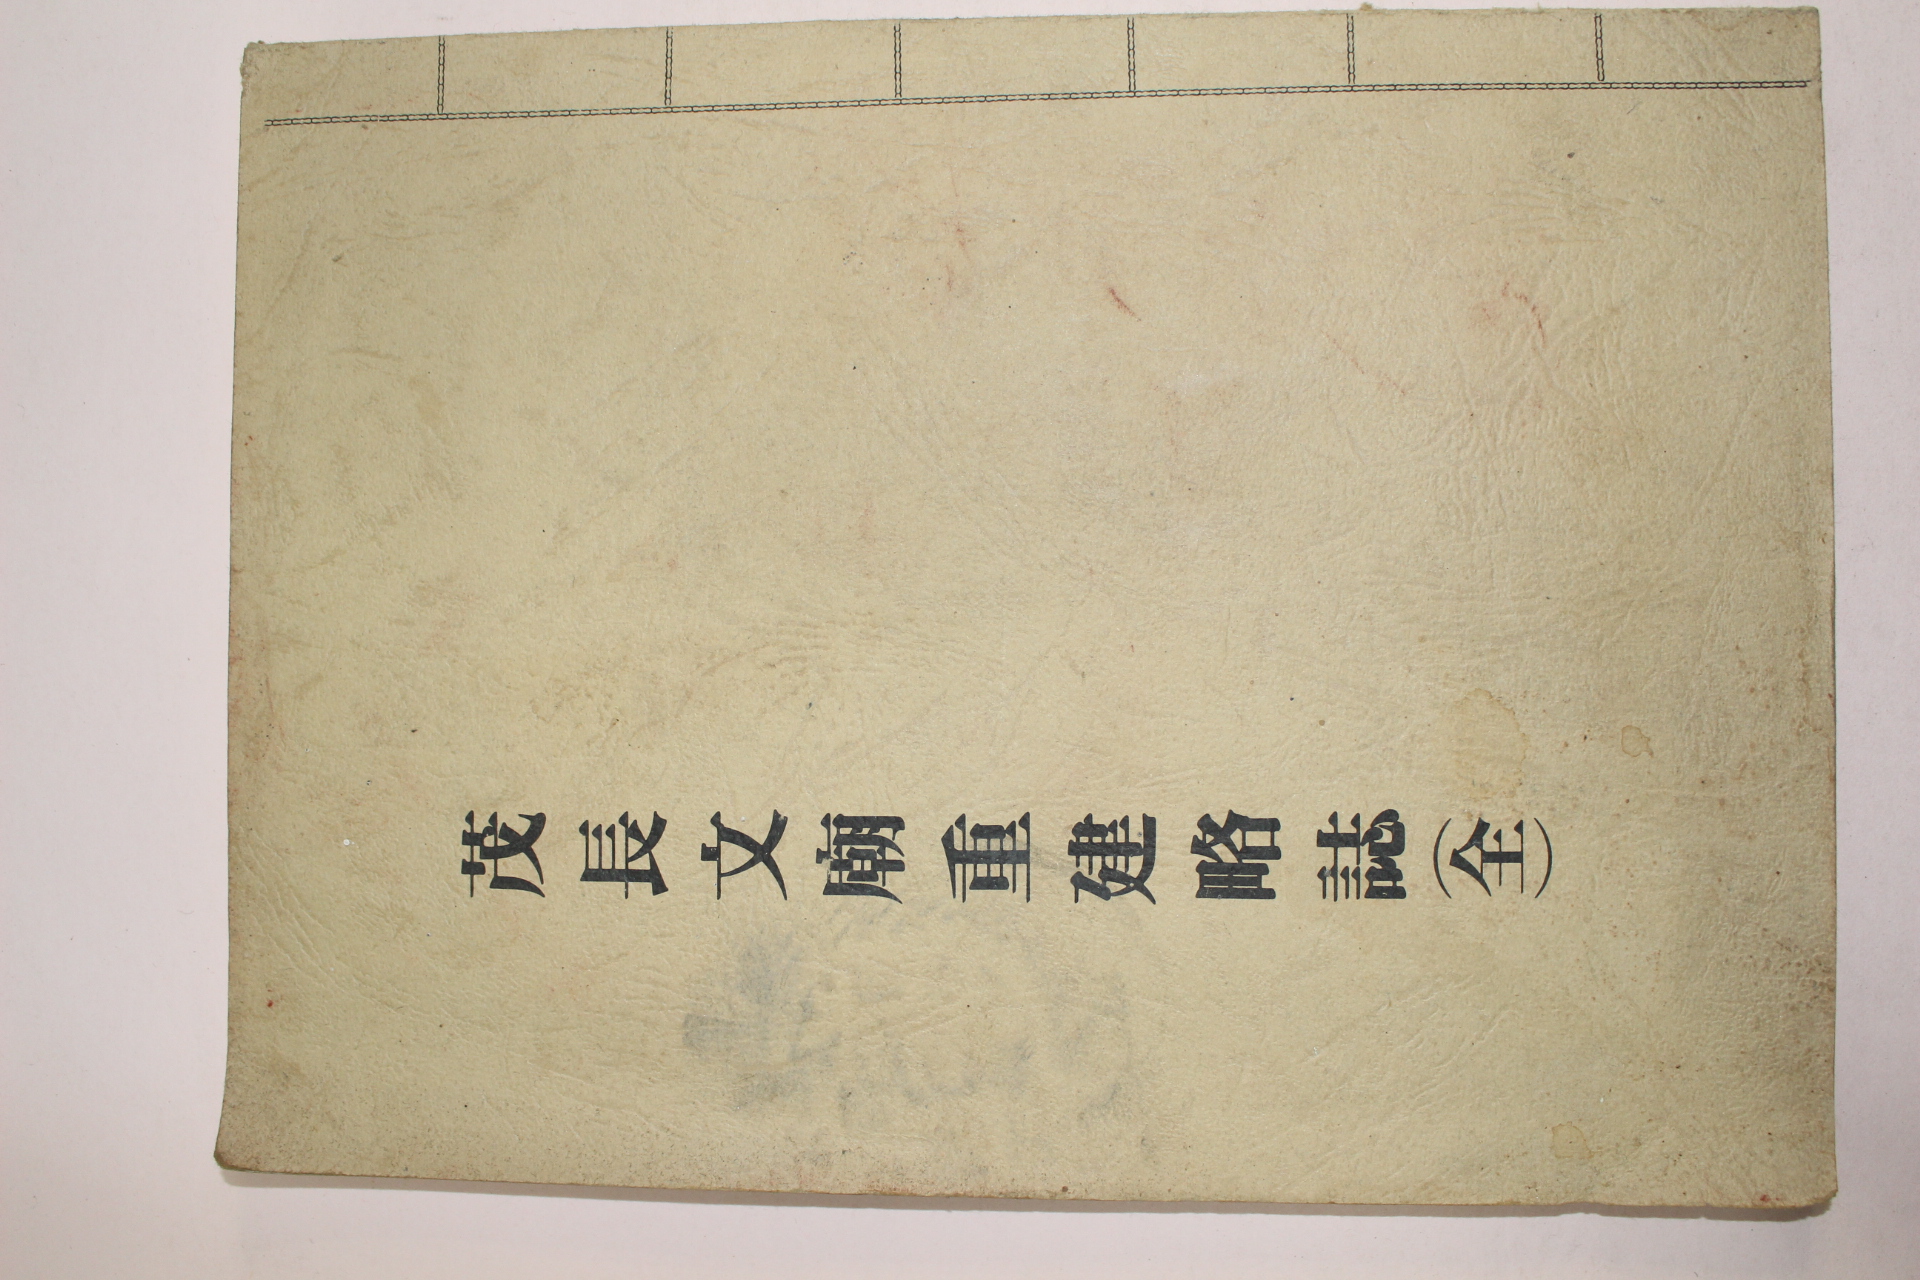 茂長文廟重建略誌(全)